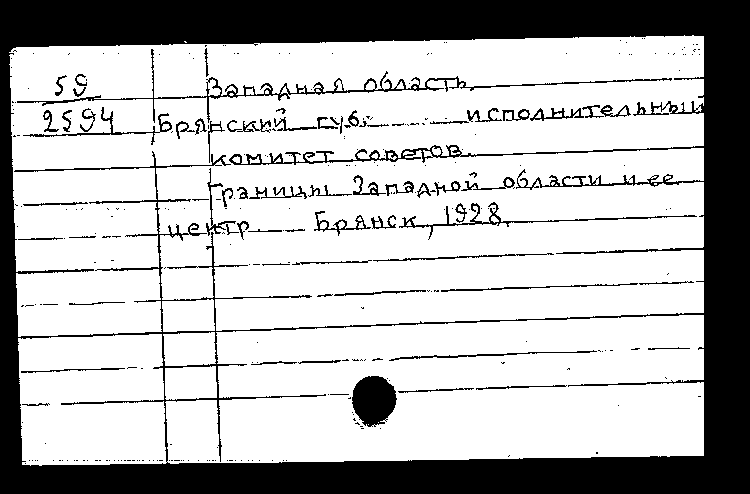 59 Западная область.
2594 Брянский губ. исполнительный
комитет советов.
Границы Западной области и ее
центр. Брянск, 1928.